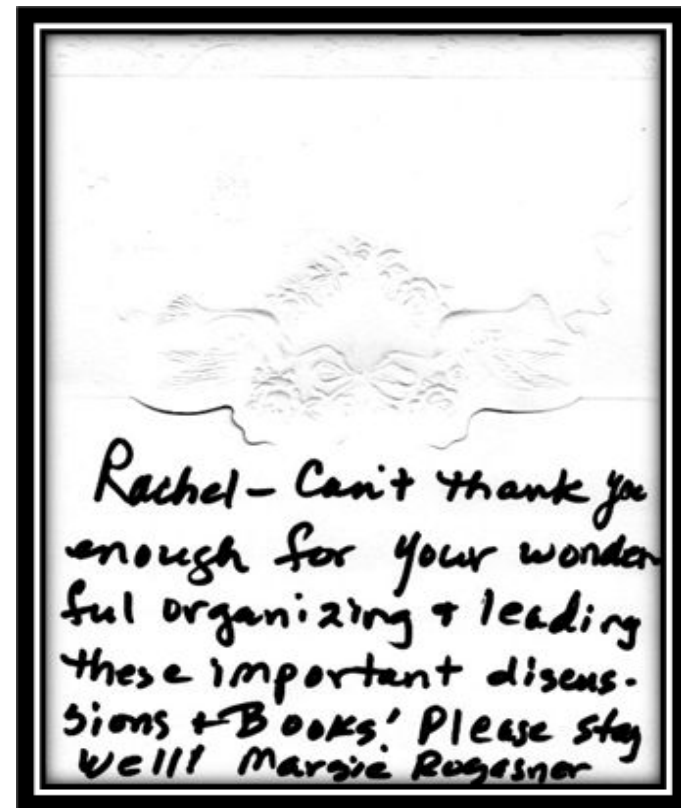 Rachel - Can't thank you
enough for your wonder
ful organizing + leading
these important discus-
sions + Books! Please stay
well! Margie Rogasner